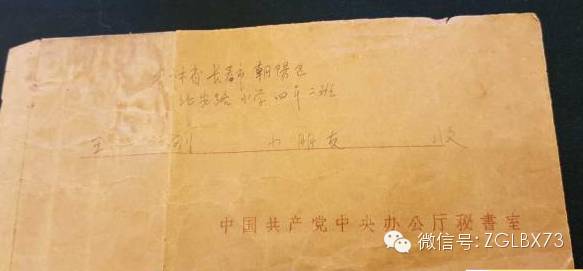 吉林省长春市朝陽区
北安路小学四年二班
王 刚 小朋友 收
中国共产党中央办公厅秘書室
微信号: ZGLBX73